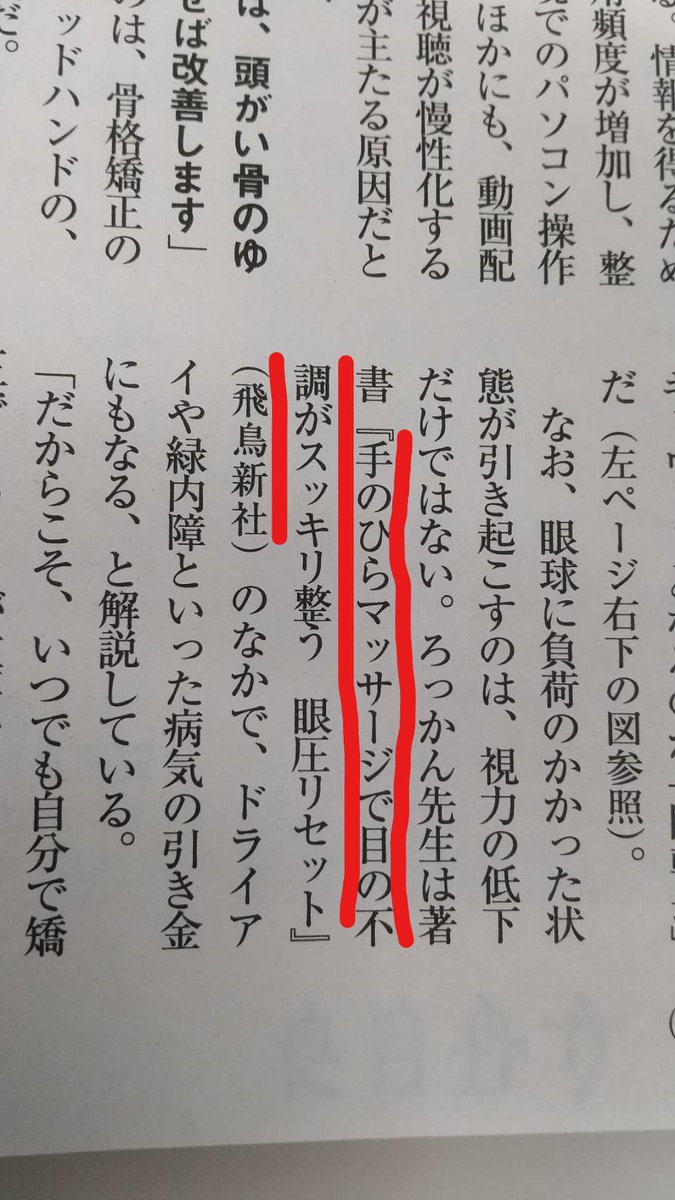 。情報を得るため
頻度が増加し、整
でのパソコン操作
ほかにも、動画配
視聴が慢性化する
が主たる原因だと
は、頭がい骨のゆ
せば改善します」
のは、骨格矯正の
ッドハンドの、
だ。
だ（左ページ右下の図参照）。
なお、眼球に負荷のかかった状
態が引き起こすのは、視力の低下
だけではない。ろっかん先生は著
書『手のひらマッサージで目の不
調がスッキリ整う　眼圧リセット』
（飛鳥新社）のなかで、ドライア
イや緑内障といった病気の引き金
にもなる、と解説している。
「だからこそ、いつでも自分で矯